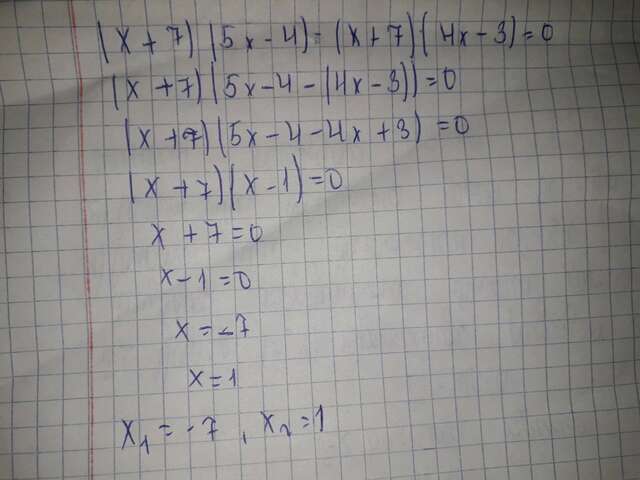 (x+7)(5x-4)-(x+7)(4x-3)=0
(x+7)(5x-4-(4x-3))=0
(x+7)(5x-4-4x+3)=0
(x+7)(x-1)=0
x+7=0
x-1=0
x=-7
x=1
x₁=-7, x₂=1